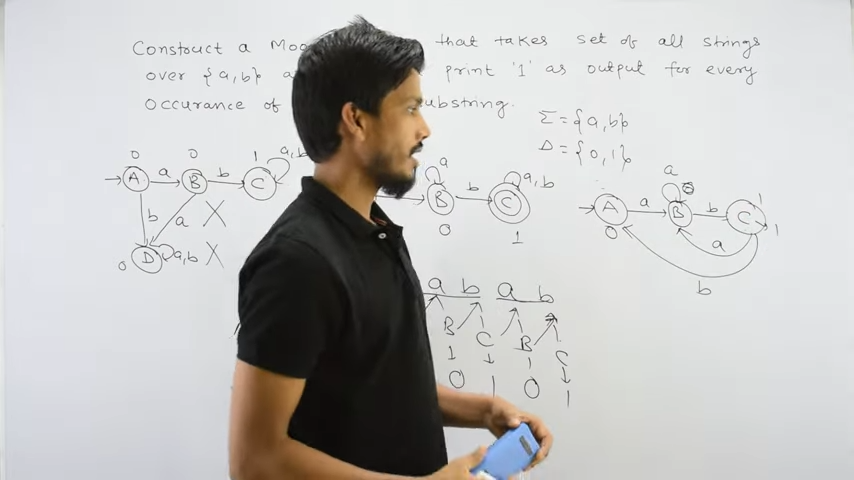 Construct a Moo that takes set of all strings
over {a,b} a print '1' as output for every
occurance of substring.
Σ = {a,b}
Δ = {0,1}
0 0 1 a,b
A a B b C
b a X
0 D a,b X
a
B b C a,b
0 1
a
A a B b C 1
0 1
a
b
a b a b
B C B C
1
0 1 0 1